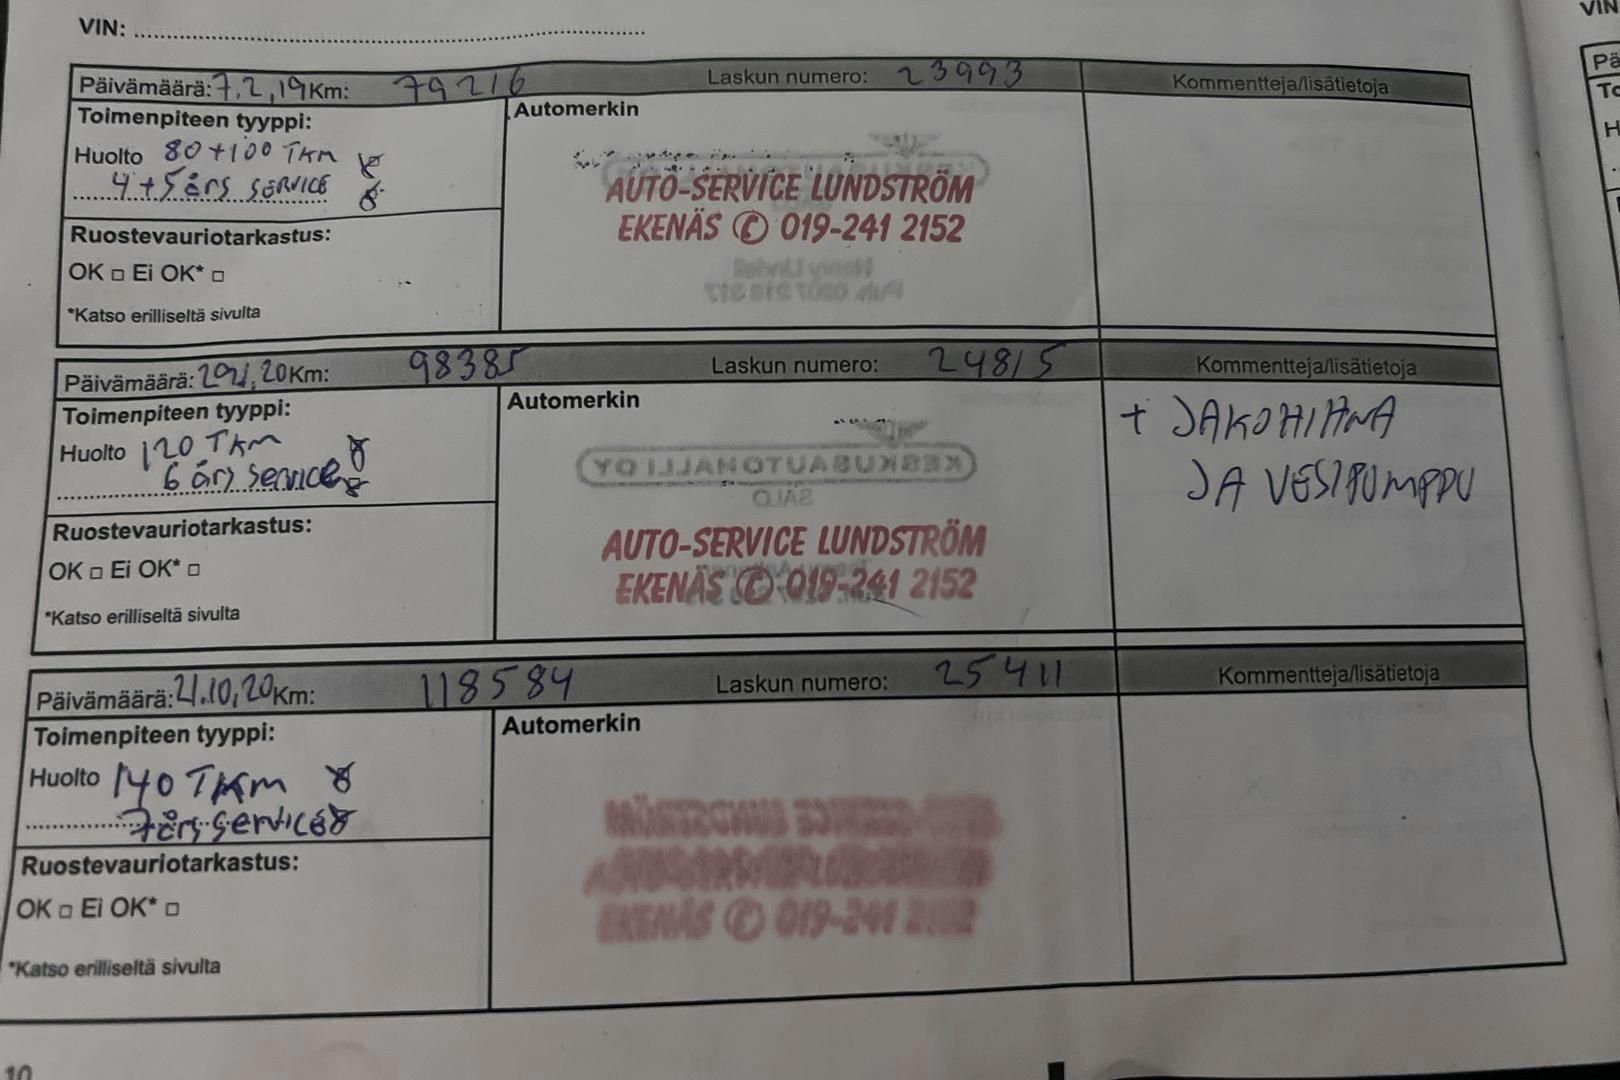 VIN:
VIN
Päivämäärä: 7.2,19 Km: 79216 Laskun numero: 23993 Kommentteja/lisätietoja
Toimenpiteen tyyppi:
Automerkin
Huolto 80+100 TKM
4+5 års SERVICE
AUTO-SERVICE LUNDSTRÖM
EKENÄS © 019-241 2152
Ruostevauriotarkastus:
OK □ Ei OK* □
*Katso erilliseltä sivulta
Päivämäärä: 29.1.20 Km: 98385 Laskun numero: 24815 Kommentteja/lisätietoja
Toimenpiteen tyyppi:
Automerkin
Huolto 120 TKM
6 års service
+ JAKOHIHNA
JA VESIPUMPPU
KESKUSAUTOHALLI OY
SALO
AUTO-SERVICE LUNDSTRÖM
EKENÄS © 019-241 2152
Ruostevauriotarkastus:
OK □ Ei OK* □
*Katso erilliseltä sivulta
Päivämäärä: 21.10,20 Km: 118584 Laskun numero: 25411 Kommentteja/lisätietoja
Toimenpiteen tyyppi:
Automerkin
Huolto 140 TKM
7 års service
EKENÄS © 019-241 2152
Ruostevauriotarkastus:
OK □ Ei OK* □
*Katso erilliseltä sivulta
10